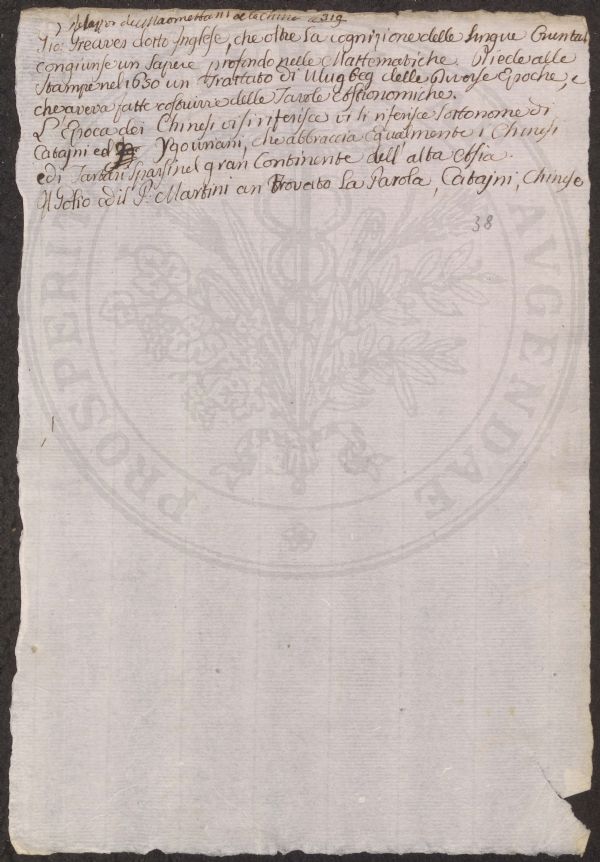 Relazion dei Maomettani de la China a 319
Gio: Greaves dotto Inglese, che oltre la cognizione delle lingue Orientali
congiunse un sapere profondo nelle Mattematiche. Diede alle
stampe nel 1650 un Trattato di Ulug beg delle Diverse Epoche, e
che aveva fatte costruire delle Tavole Astronomiche.
L'Epoca dei Chinesi vi si riferisce vi si riferisce sottonome di
Catajni ed Ygournani, che abbraccia egualmente i Chinesi
ed i Tartari sparsi nel gran Continente dell'alta Asia.
Il Golio ed il P. Martini an trovato la Parola, Catajni, Chinese
38
PROSPERITATI AUGENDAE